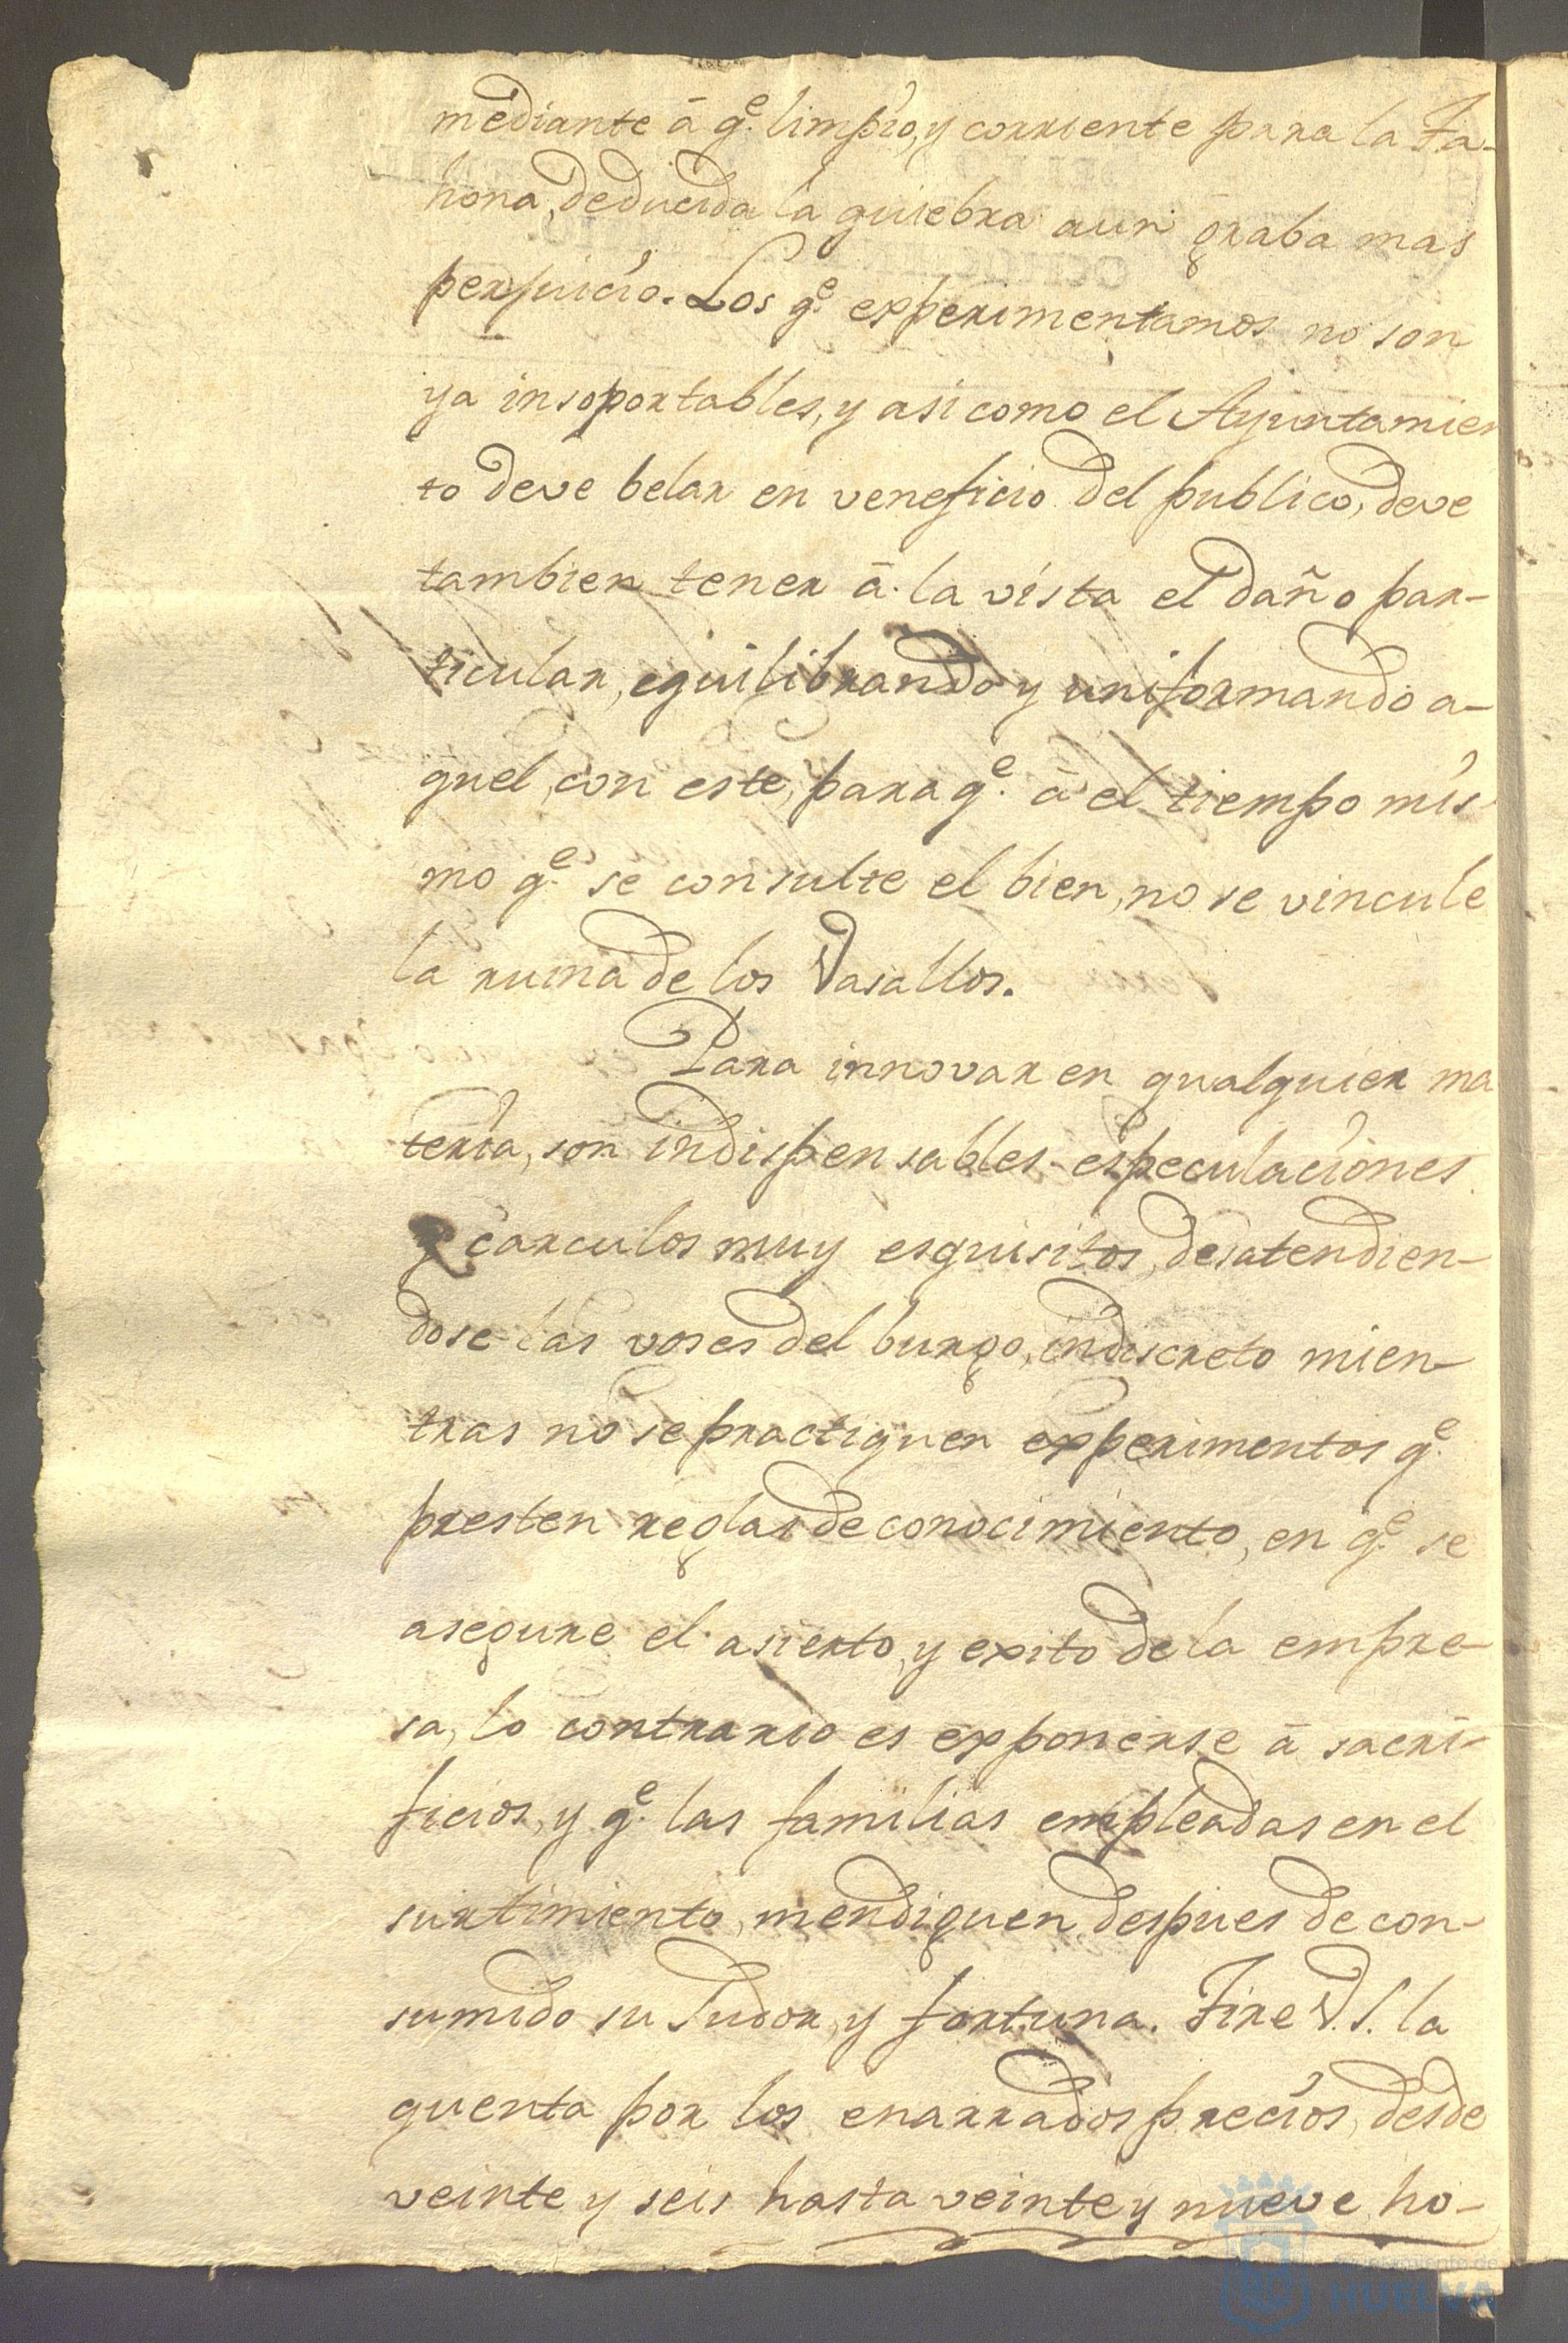 mediante á q.e limpio, y corriente para la Ta-
hona, deducida la quiebra aun graba mas
perjuicio. Los q.e experimentamos no son
ya insoportables, y asi como el Ayuntamien
to deve belar en veneficio del publico, deve
tambien tener á la vista el daño par-
ticular, equilibrando y uniformando a-
quel con este, para q.e á el tiempo mis-
mo q.e se consulte el bien, no se vincule
la ruina de los Vasallos.
Para innovar en qualquier ma
teria, son indispensables especulaciones
y carculos muy esquisitos, desatendien-
dose las voses del burgo, indiscreto mien-
tras no se practiquen experimentos q.e
presten reglas de conocimiento, en q.e se
asegure el asierto, y exito de la empre-
sa, lo contrario es exponerse á sacri-
ficios, y q.e las familias empleadas en el
surtimiento, mendiguen, despues de con-
sumido su Sudor, y fortuna. Tire V.S. la
quenta por los enarrados precios, desde
veinte y seis hasta veinte y nueve, ho-
Ayuntamiento de
HUELVA